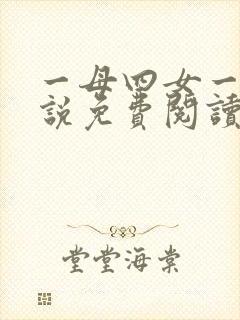 一母四女一
説免費閱讀
堂堂海棠